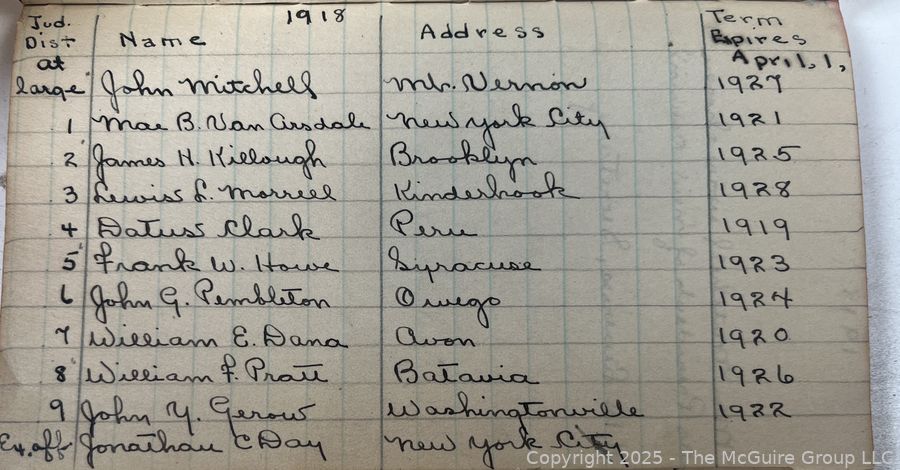 Jud. Dist 1918 Name Address Term Expires
at large John Mitchell Mt. Vernon April, 1, 1927
1 Mae B. Van Arsdale New York City 1921
2 James H. Killough Brooklyn 1925
3 Lewiss L. Morrell Kinderhook 1928
4 Datuss Clark Peru 1919
5 Frank W. Howe Syracuse 1923
6 John G. Pembleton Owego 1924
7 William E. Dana Avon 1920
8 William F. Pratt Batavia 1926
9 John Y. Gerow Washingtonville 1922
Ex. off Jonathan C Day New York City
Copyright 2025 - The McGuire Group LLC